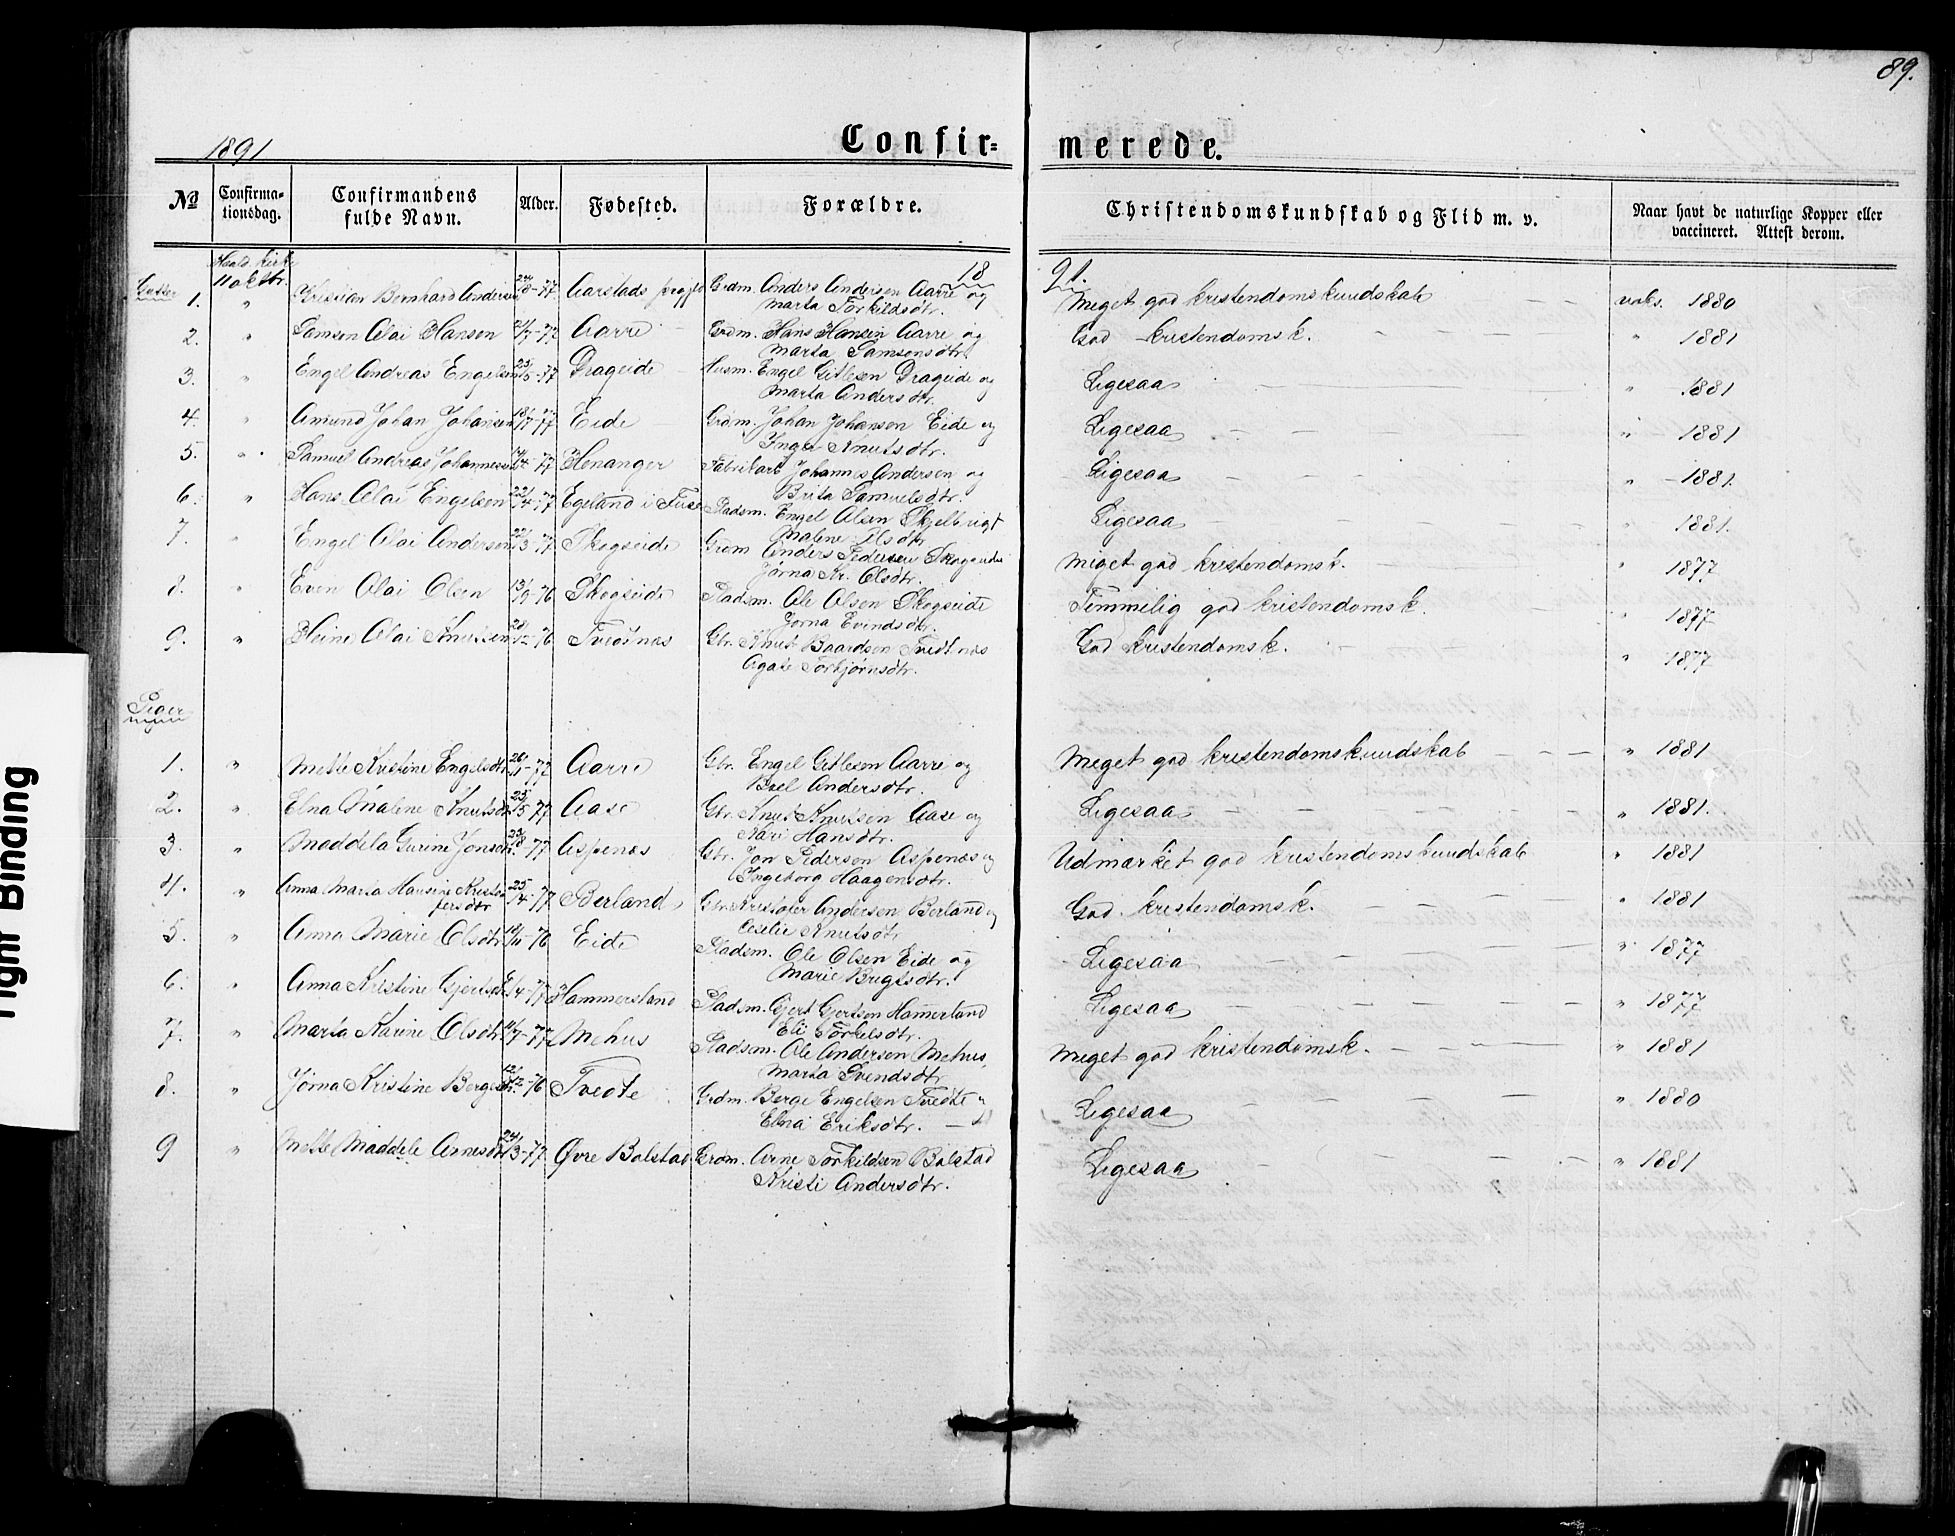 89.
1891 Confir= merede.
№ Confirma-tionsdag. Confirmandens fulde Navn. Alder. Fødested. Forældre. Christendomskundskab og Flid m. v. Naar havt de naturlige Kopper eller vaccineret. Attest derom.
18 91.
11 oktbr.
1. " Kristian Bernhard Anders 77 Aarstads prgjld Grdm. Anders Andersen Aarre og Meget god kristendomskundskab vaks. 1880
Marta Torkildsdtr.
2. " Samson Olai Hansen 77 Aarre Grdm. Hans Hansen Aarre og God kristendomsk. " 1881
Marta Samsonsdtr.
3. " Engel Andreas Engelsen 25/5-77 Drageide Husm. Engel Gitlesen Drageide og Ligesaa " 1881
Marta Andersdtr.
4. " Amund Johan Johansen 77 Eide Grdm. Johan Johanson Eide og Ligesaa " 1881
Inga Knutsdtr.
5. " Samuel Andreas Johannesen 77 Henanger Fabrikarb Johannes Andersen og Ligesaa " 1881.
Brita Samuelsdtr.
6. " Hans Olai Engelsen 22/4-77 Egeland i Fuse Pladsm. Engel Olsen Skjelbrigt Ligesaa " 1881.
Malene Olsdtr
7. " Engel Olai Andersen 22/3-77 Skogseide Grdm Anders Pedersen Skogseide Meget god kristendomsk. " 1877
Jørna Kr. Olsdtr.
8. " Even Olai Olsen 13/9-76 Skogseide Pladsm. Ole Olsen Skogseide Temmelig god kristendomsk. " 1877
Jorna Evindsdtr.
9. " Heine Olai Knutsen 76 Tvedtnæs Gbr. Knut Baardsen Tvedtnæs God kristendomsk. " 1877
Agate Torbjørnsdtr.
Piger
1. " Mette Kristine Engelsdtr 26/1-77 Aarre Gbr. Engel Gitlesen Aarre og Meget god kristendomskundskab " 1881
Boel Andersdtr.
2. " Elna Malene Knutsdtr 25/5-77 Aase Gbr. Knut Knutsen Aase og Ligesaa " 1881.
Kari Hansdtr.
3. " Maddela Gurine Jonsdtr 77 Aspenæs Gbr. Jon Pederson Aspenæs og Udmærket god kristendomskundskab " 1881
Ingeborg Haagensdtr.
4. " Anna Marta Hansine Kristo- 25/4-77 Berland Gbr. Kristofer Andersen Berland og God kristendomsk. " 1881
fersdtr Cecelie Knutsdtr
5. " Anna Marie Olsdtr. 76 Eide Pladsm. Ole Olsen Eide og Ligesaa " 1877
Marie Brigtsdtr.
6. " Anna Kristine Gjertsdtr 77 Hammersland Pladsm. Gjert Gjertson Hamerland Ligesaa " 1877
Eli Torkelsdtr.
7. " Marta Karine Olsdtr. 77 Mehus Pladsm. Ole Andersen Mehus, Meget god kristendomsk. " 1881
Marta Svendsdtr
8. " Jørna Kristine Bergesdtr. 12/12-76 Tvedte Grdm. Berge Engelsen Tvedte " Ligesaa " 1880
Elna Eriksdtr.
9 " Mette Maddele Arnesdtr 24/3-77 Øvre Bolstad Grdm. Arne Torkildsen Bolstad Ligesaa " 1881
Kristi Andersdtr.
Tight Binding